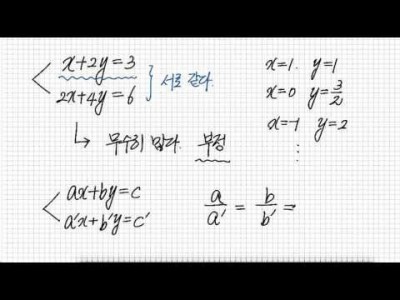 x+2y=3
2x+4y=6
서로 같다.
↳ 무수히 많다. 부정
x=1. y=1
x=0 y=3/2
x=-1 y=2
⋮
ax+by=c
a'x+b'y=c'
a/a' = b/b' =